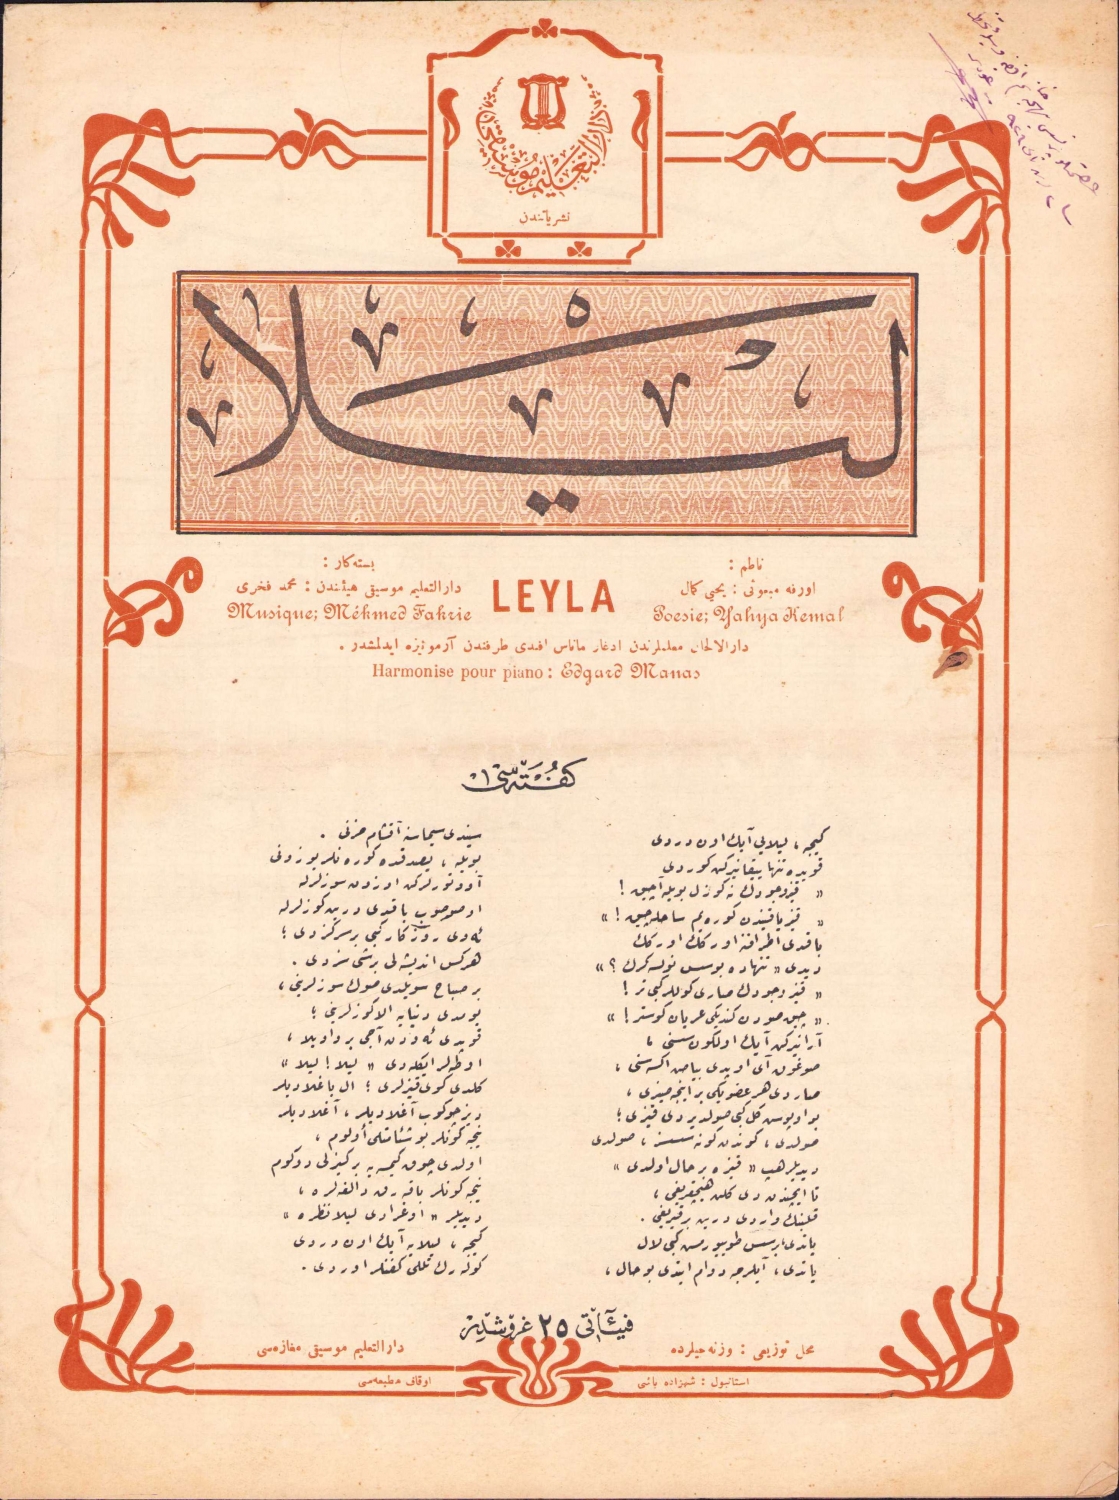 دارالتعليم موسيقى
نشرياتندن
ليلا
ناظم :
اورفه مبعوثى : يحيى كمال
Poesie; Yahya Kemal
LEYLA
بسته كار :
دارالتعليم موسيقى هيئتندن : محمد فخرى
Musique; Mékmed Fakrie
دارالالحان معلملرندن ادغار ماناس افندى طرفندن آرمونيزه ايدلمشدر .
Harmonise pour piano : Edgard Manas
كفته سى
كيجه ، ليلايى آيك اون دردى
قويده تنها ييقانيركن كوردى
« قيز وجودك نه كوزل بويله آچيق !
« قيز ياقيندن كوره يم ساحله چيق ! »
باقدى اطرافنه اوركك اوركك
ديدى « تنهاده بو سس نوله كرك ؟ »
« قيز وجودك صارى كوللر كبى تر !
« چيق صودن كنديكى عريان كوستر ! »
آرانيركن آيك اولكون سسنى
صوغون آى اوپدى بياض اكسه سنى ،
صاردى هر عضوينى بر اينجه صيزى ،
بو اوپوس كل كبى صولديردى قيزى ؛
صولدى ، كوندن كونه سسسز ، صولدى
ديديلر هپ « قيزه بر حال اولدى »
تا ايچندن دى كلن هيچقريغى ،
قلبنك واردى درين بر قيريغى .
ياتدى بر سس طويويورمش كبى لال
ياتدى ، آيلرجه دوام ايتدى بو حال ،
سيندى سيماسنه آقشام حزنى .
بويله ، يصدقده كورنلر يوزونى
آووتورلركن اوزون سوزلرله
اوصوصوب باقدى درين كوزلرله
ئه وى روزكار كبى بر سر كزدى ؛
هركس انديشه لى بر شى سزدى .
بر صباح سويلدى صوك سوزلرينى ،
يومدى دنيايه الا كوزلرينى ؛
قوپدى ئه ودن آجى بر واويلا ،
اوطه لر ايكلدى « ليلا ! ليلا »
كلدى كوى قيزلرى ؛ ال باغلاديلر
ديز چوكوب آغلاديلر ، آغلاديلر
نيجه كونلر بو شئامتلى اولوم ،
اولدى چوق كيمسه يه بر كيزلى دوكوم
نيجه كونلر باقه رق دالغه لره ،
ديديلر « اوغرادى ليلا نظره »
كيجه ، ليلايه آيك اون دردى
كوله رك تللى كفنلر اوردى .
فيئاتى ٢٥ غروشدر
محل توزيعى : وزنه جيلرده
دارالتعليم موسيقى مغازه سى
استانبول : شهزاده باشى
اوقاف مطبعه سى